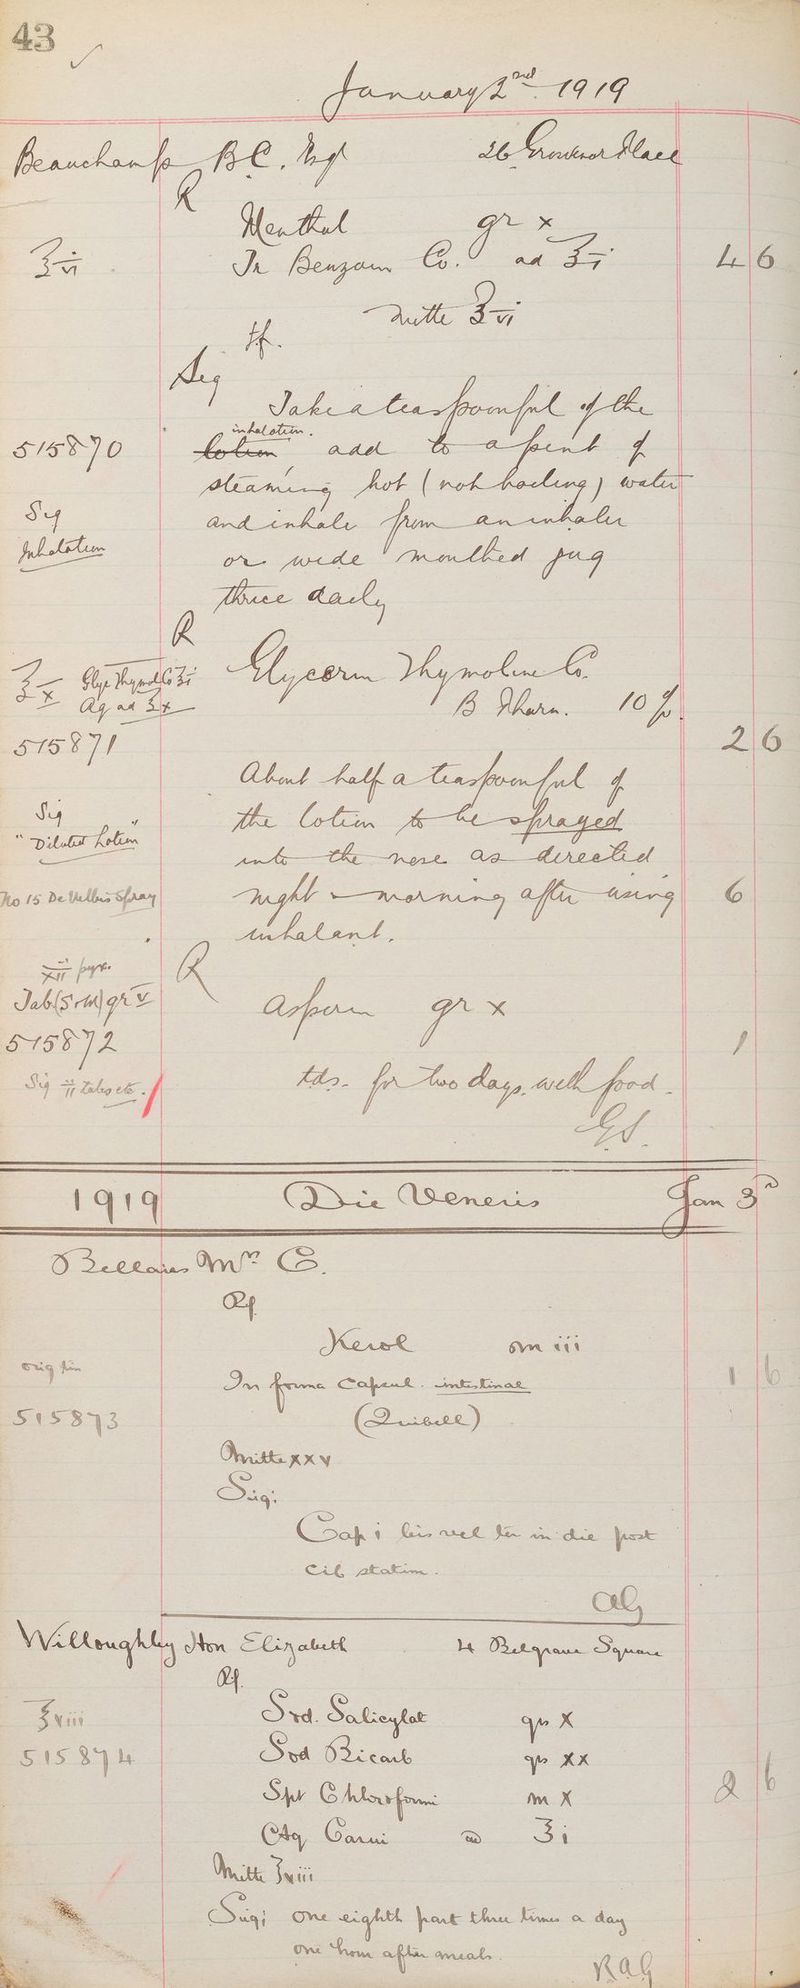 43
January 2nd 1919
Beauchamp B.C. Esqr 26 Grosvenor Place
R
Menthol gr x
℥vi Tr Benzoin Co. ad ℥i 4 6
mitte ℥vi
Sig
Take a teaspoonful of the
inhalation.
515870 lotion add to a pint of
steaming hot (not boiling) water
Sig and inhale from an inhaler
Inhalation or wide mouthed jug
thrice daily
R
℥x Glyc Thymol Co ℥i Glycerin Thymoline Co.
Aq ad ℥x B Pharm. 10%.
515871 2 6
About half a teaspoonful of
Sig the lotion to be sprayed
"Diluted Lotion" into the nose as directed
No 15 De Vilbis Spray night & morning after using 6
inhalant.
xii pyx. R
Tab (S & M) gr v Aspirin gr x
515872 1
Sig ii tabs etc. t.d.s. for two days. with food.
G.S.
1919 Die Veneris Jan 3rd
Bellairs Mrs C.
Rf
Kerol m iii
orig tin In forma capsul. intestinal 1 6
515873 (Quibell)
Mitte xxv
Sig:
Cap i bis vel ter in die post
cib statim.
AG
Willoughby Hon Elizabeth 4 Belgrave Square
Rf.
℥viii Sod. Salicylat grs x
515874 Sod Bicarb grs xx
Spt Chloroformi m x 2 6
Aq Carui ad ℥i
Mitte ℥viii
Sig; one eighth part three times a day
one hour after meals.
RAG